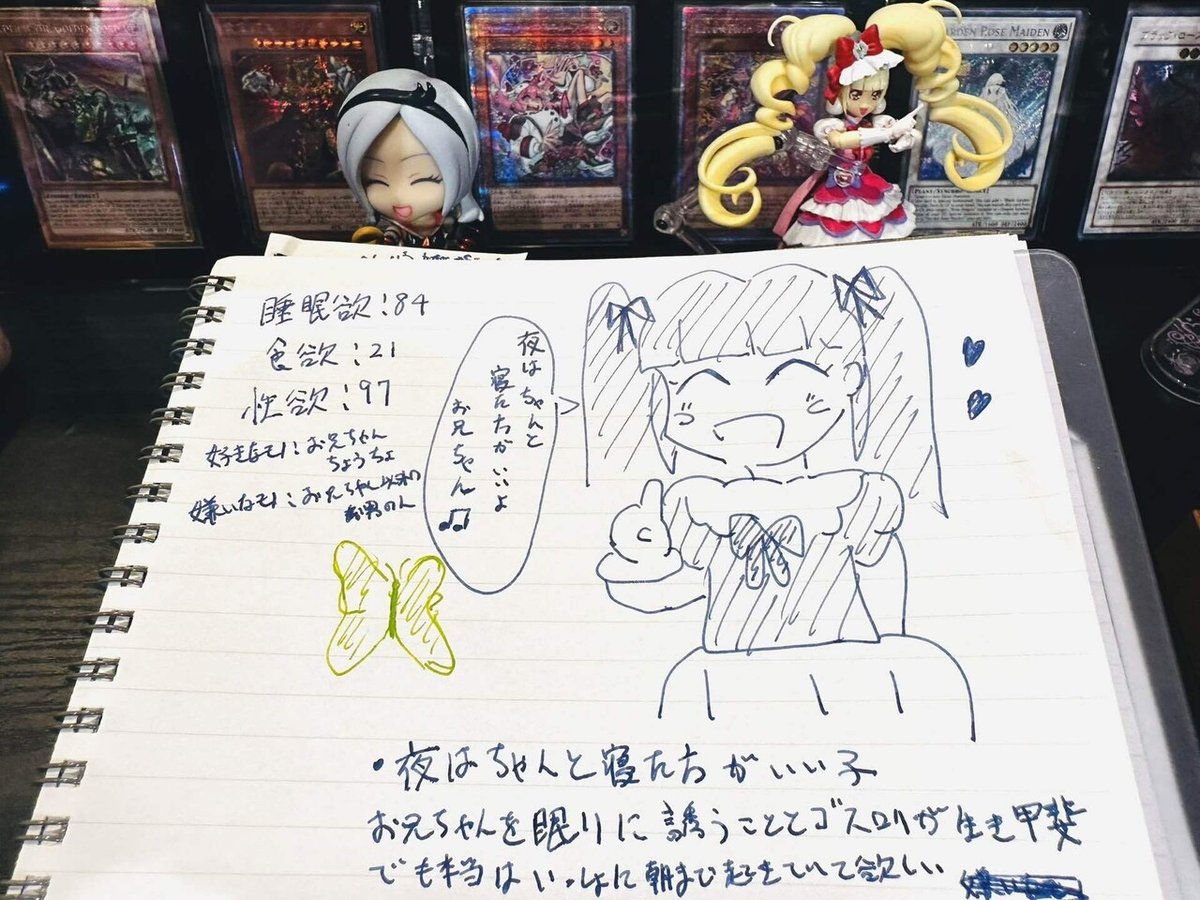 GARDEN ROSE MAIDEN
睡眠欲:84
食欲:21
性欲:97
好きなモノ:お兄ちゃん
ちょうちょ
嫌いなモノ:お兄ちゃん以外の
お男の人
夜はちゃんと
寝たたちがいいよ
お兄ちゃん♫
・夜はちゃんと寝たたちがいい子
お兄ちゃんを眠りに誘うこととゴスロリが生き甲斐
でも本当はいっしょに朝まで起きていて欲しい